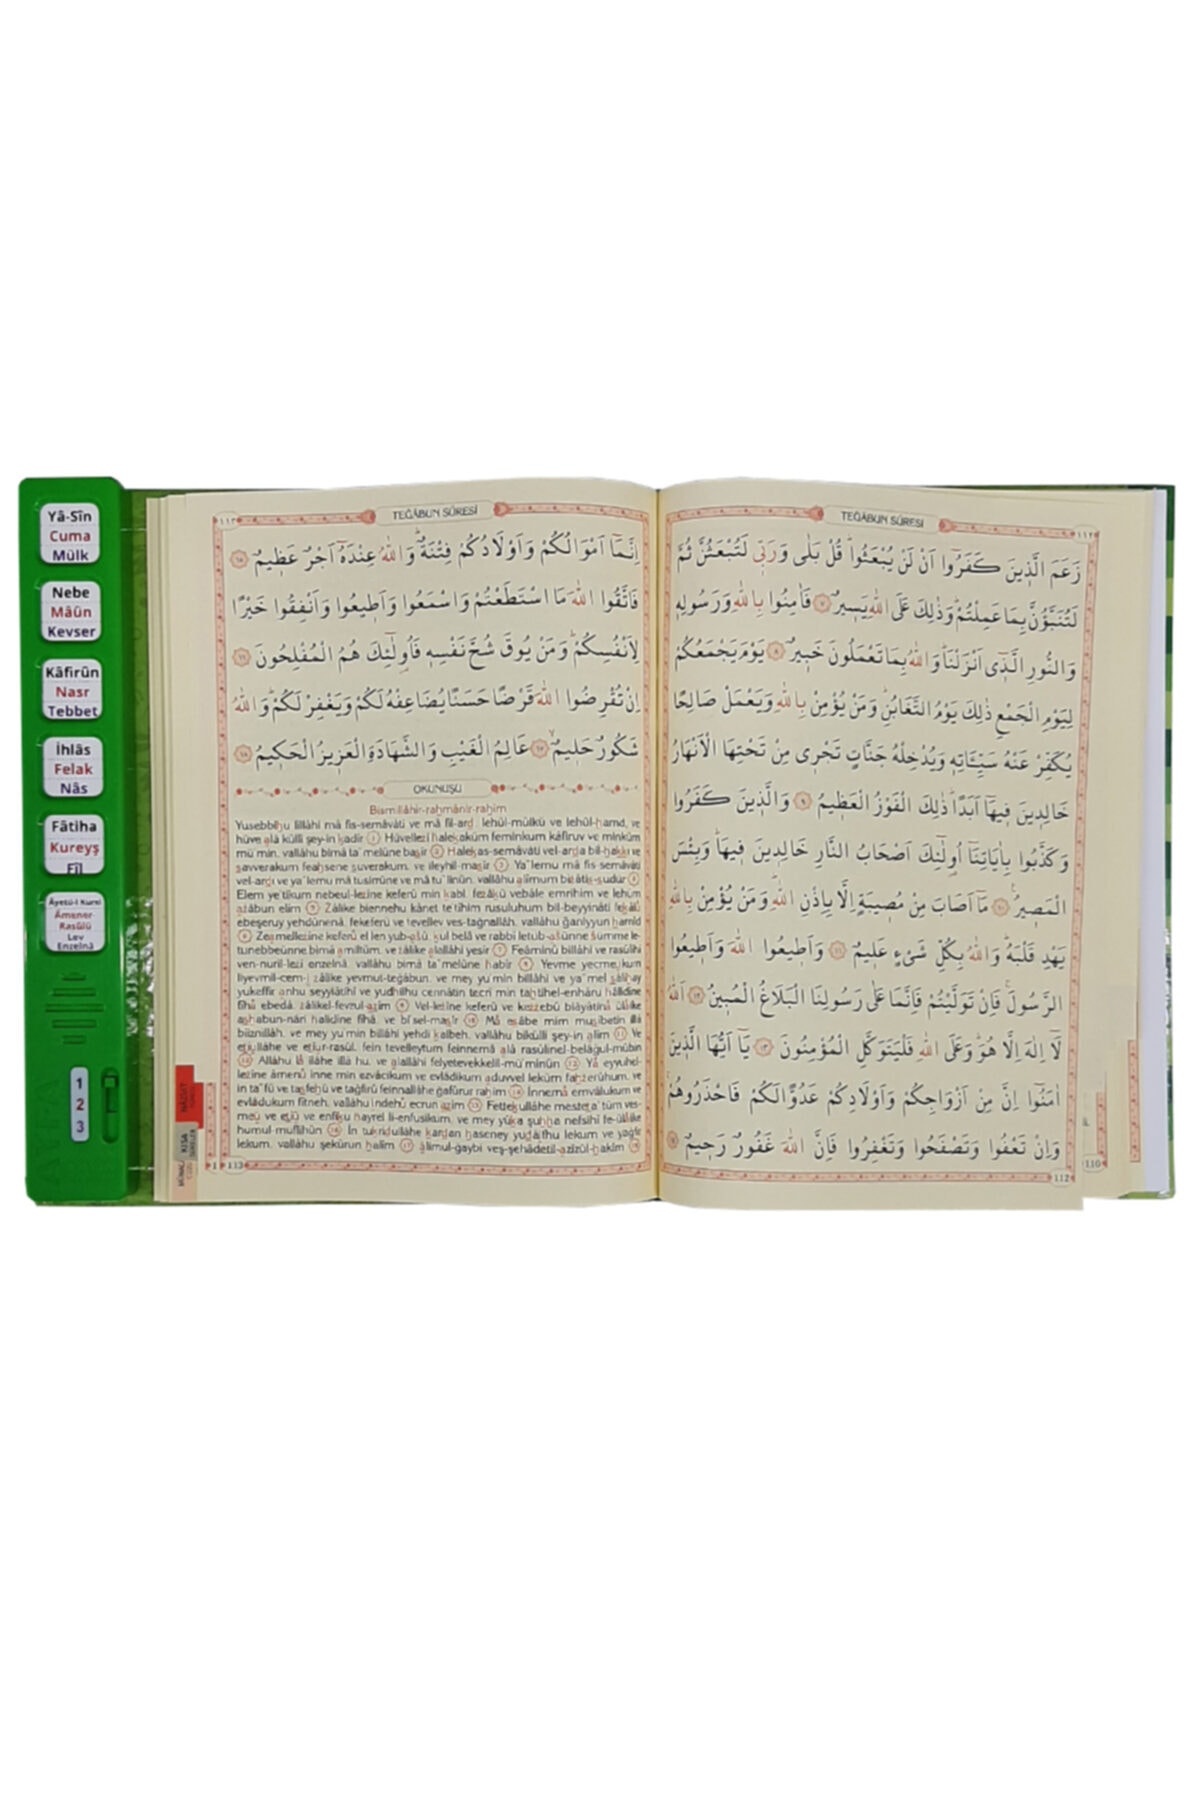 Yâ-Sîn
Cuma
Mülk
Nebe
Mâûn
Kevser
Kâfirûn
Nasr
Tebbet
İhlâs
Felak
Nâs
Fâtiha
Kureyş
Fîl
Âyetü-l Kürsî
Âmener-
Rasûlü
Lev
Enzelnâ
1
2
3
TEĞÂBUN SÛRESİ
١١٢
زَعَمَ الَّذِينَ كَفَرُٓوا اَنْ لَنْ يُبْعَثُواۜ قُلْ بَلٰى وَرَبّ۪ي لَتُبْعَثُنَّ ثُمَّ
لَتُنَبَّؤُنَّ بِمَا عَمِلْتُمْۜ وَذٰلِكَ عَلَى اللّٰهِ يَس۪يرٌ ٧ فَاٰمِنُوا بِاللّٰهِ وَرَسُولِه۪
وَالنُّورِ الَّذ۪ٓي اَنْزَلْنَاۜ وَاللّٰهُ بِمَا تَعْمَلُونَ خَب۪يرٌ ٨ يَوْمَ يَجْمَعُكُمْ
لِيَوْمِ الْجَمْعِ ذٰلِكَ يَوْمُ التَّغَابُنِۜ وَمَنْ يُؤْمِنْ بِاللّٰهِ وَيَعْمَلْ صَالِحًا
يُكَفِّرْ عَنْهُ سَيِّـَٔاتِه۪ وَيُدْخِلْهُ جَنَّاتٍ تَجْر۪ي مِنْ تَحْتِهَا الْاَنْهَارُ
خَالِد۪ينَ ف۪يهَٓا اَبَدًاۜ ذٰلِكَ الْفَوْزُ الْعَظ۪يمُ ٩ وَالَّذ۪ينَ كَفَرُوا
وَكَذَّبُوا بِاٰيَاتِنَٓا اُو۬لٰٓئِكَ اَصْحَابُ النَّارِ خَالِد۪ينَ ف۪يهَاۜ وَبِئْسَ
الْمَص۪يرُ۟ ١٠ مَٓا اَصَابَ مِنْ مُص۪يبَةٍ اِلَّا بِاِذْنِ اللّٰهِۜ وَمَنْ يُؤْمِنْ بِاللّٰهِ
يَهْدِ قَلْبَهُۜ وَاللّٰهُ بِكُلِّ شَيْءٍ عَل۪يمٌ ١١ وَاَط۪يعُوا اللّٰهَ وَاَط۪يعُوا
الرَّسُولَۚ فَاِنْ تَوَلَّيْتُمْ فَاِنَّمَا عَلٰى رَسُولِنَا الْبَلَاغُ الْمُب۪ينُ ١٢ اَللّٰهُ
لَٓا اِلٰهَ اِلَّا هُوَۜ وَعَلَى اللّٰهِ فَلْيَتَوَكَّلِ الْمُؤْمِنُونَ ١٣ يَٓا اَيُّهَا الَّذ۪ينَ
اٰمَنُٓوا اِنَّ مِنْ اَزْوَاجِكُمْ وَاَوْلَادِكُمْ عَدُوًّا لَكُمْ فَاحْذَرُوهُمْۚ
وَاِنْ تَعْفُوا وَتَصْفَحُوا وَتَغْفِرُوا فَاِنَّ اللّٰهَ غَفُورٌ رَح۪يمٌ ١٤
112
110
TEĞÂBUN SÛRESİ
١١٣
اِنَّمَٓا اَمْوَالُكُمْ وَاَوْلَادُكُمْ فِتْنَةٌۜ وَاللّٰهُ عِنْدَهُٓ اَجْرٌ عَظ۪يمٌ ١٥
فَاتَّقُوا اللّٰهَ مَا اسْتَطَعْتُمْ وَاسْمَعُوا وَاَط۪يعُوا وَاَنْفِقُوا خَيْرًا
لِاَنْفُسِكُمْۜ وَمَنْ يُوقَ شُحَّ نَفْسِه۪ فَاُو۬لٰٓئِكَ هُمُ الْمُفْلِحُونَ ١٦
اِنْ تُقْرِضُوا اللّٰهَ قَرْضًا حَسَنًا يُضَاعِفْهُ لَكُمْ وَيَغْفِرْ لَكُمْۜ وَاللّٰهُ
شَكُورٌ حَل۪يمٌۙ ١٧ عَالِمُ الْغَيْبِ وَالشَّهَادَةِ الْعَز۪يزُ الْحَك۪يمُ ١٨
OKUNUŞU
Bismillâhir-rahmânir-rahîm
Yusebbihu lillâhi mâ fis-semâvâti ve mâ fil-ard, lehül-mülkü ve lehül-hamd, ve
hüve alâ külli şey-in kadîr 1 Hüvellezî halekaküm feminküm kâfiruv ve minküm
mü'min, vallâhu bimâ ta'melûne basîr 2 Halekas-semâvâti vel-arda bil-hakkı ve
savverakum feahsene suverakum, ve ileyhil-masîr 3 Ya'lemu mâ fis-semâvâti
vel-ardı ve ya'lemu mâ tusirrûne ve mâ tu'linûn, vallâhu alîmum bizâtis-sudûr 4
Elem ye'tiküm nebeul-lezîne keferû min kabl, fezâkû vebâle emrihim ve lehüm
azâbun elîm 5 Zâlike biennehu kânet te'tîhim rusuluhum bil-beyyinâti fekâlû
ebeşeruy yehdûnenâ, fekeferû ve tevellev ves-tağnallâh, vallâhu ğaniyyun hamîd
6 Zeamellezîne keferû el len yub-asû, kul belâ ve rabbî letub-asünne sümme le-
tunebbeünne bimâ amiltüm, ve zâlike alallâhi yesîr 7 Feâminû billâhi ve rasûlihi
ven-nuril-lezî enzelnâ, vallâhu bimâ ta'melûne habîr 8 Yevme yecmeukum
liyevmil-cem-i zâlike yevmut-teğâbun, ve mey yu'min billâhi ve ya'mel sâlihay
yukeffir anhu seyyiâtihî ve yudhilhu cennâtin tecrî min tahtihel-enhâru hâlidîne
fîhâ ebedâ, zâlikel-fevzul-azîm 9 Vel-lezîne keferû ve kezzebû biâyâtinâ ülâike
ashabun-nâri halidîne fîhâ, ve bi'sel-masîr 10 Mâ esâbe mim musîbetin illâ
biiznillâh, ve mey yu'min billâhi yehdi kalbeh, vallâhu bikülli şey-in alîm 11 Ve
etîullâhe ve etîur-rasûl, fein tevelleytum feinnemâ alâ rasûlinel-belâğul-mübîn
12 Allâhu lâ ilâhe illâ hu, ve alallâhi felyetevekkelil-mü'minûn 13 Yâ eyyuhel-
lezîne âmenû inne min ezvâcikum ve evlâdikum aduvvel lekum fahzerûhum, ve
in ta'fû ve tasfehû ve tağfirû feinnallâhe ğafûrur rahîm 14 İnnemâ emvâlukum ve
evlâdukum fitneh, vallâhu indehû ecrun azîm 15 Fettekullâhe mesteta'tüm ves-
meû ve etîû ve enfikû hayrel li-enfusikum, ve mey yûka şuhha nefsihî fe-ülâike
humul-muflihûn 16 İn tukridullâhe kardan haseney yudâifhu lekum ve yağfir
lekum, vallâhu şekûrun halîm 17 âlimul-ğaybi veş-şehâdetil-azîzül-hakîm 18
113
KISA
SÛRELER